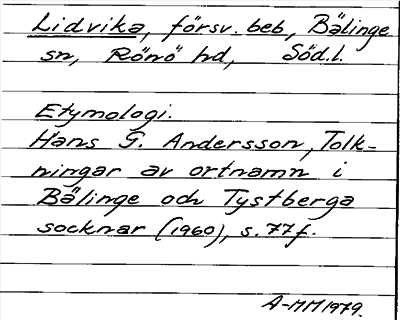 Lidvika, försv. beb, Bälinge
sn, Rönö hd, Söd.l.
Etymologi.
Hans G. Andersson, Tolk-
ningar av ortnamn i
Bälinge och Tystberga
socknar (1960), s. 77f.
A-MM1979.